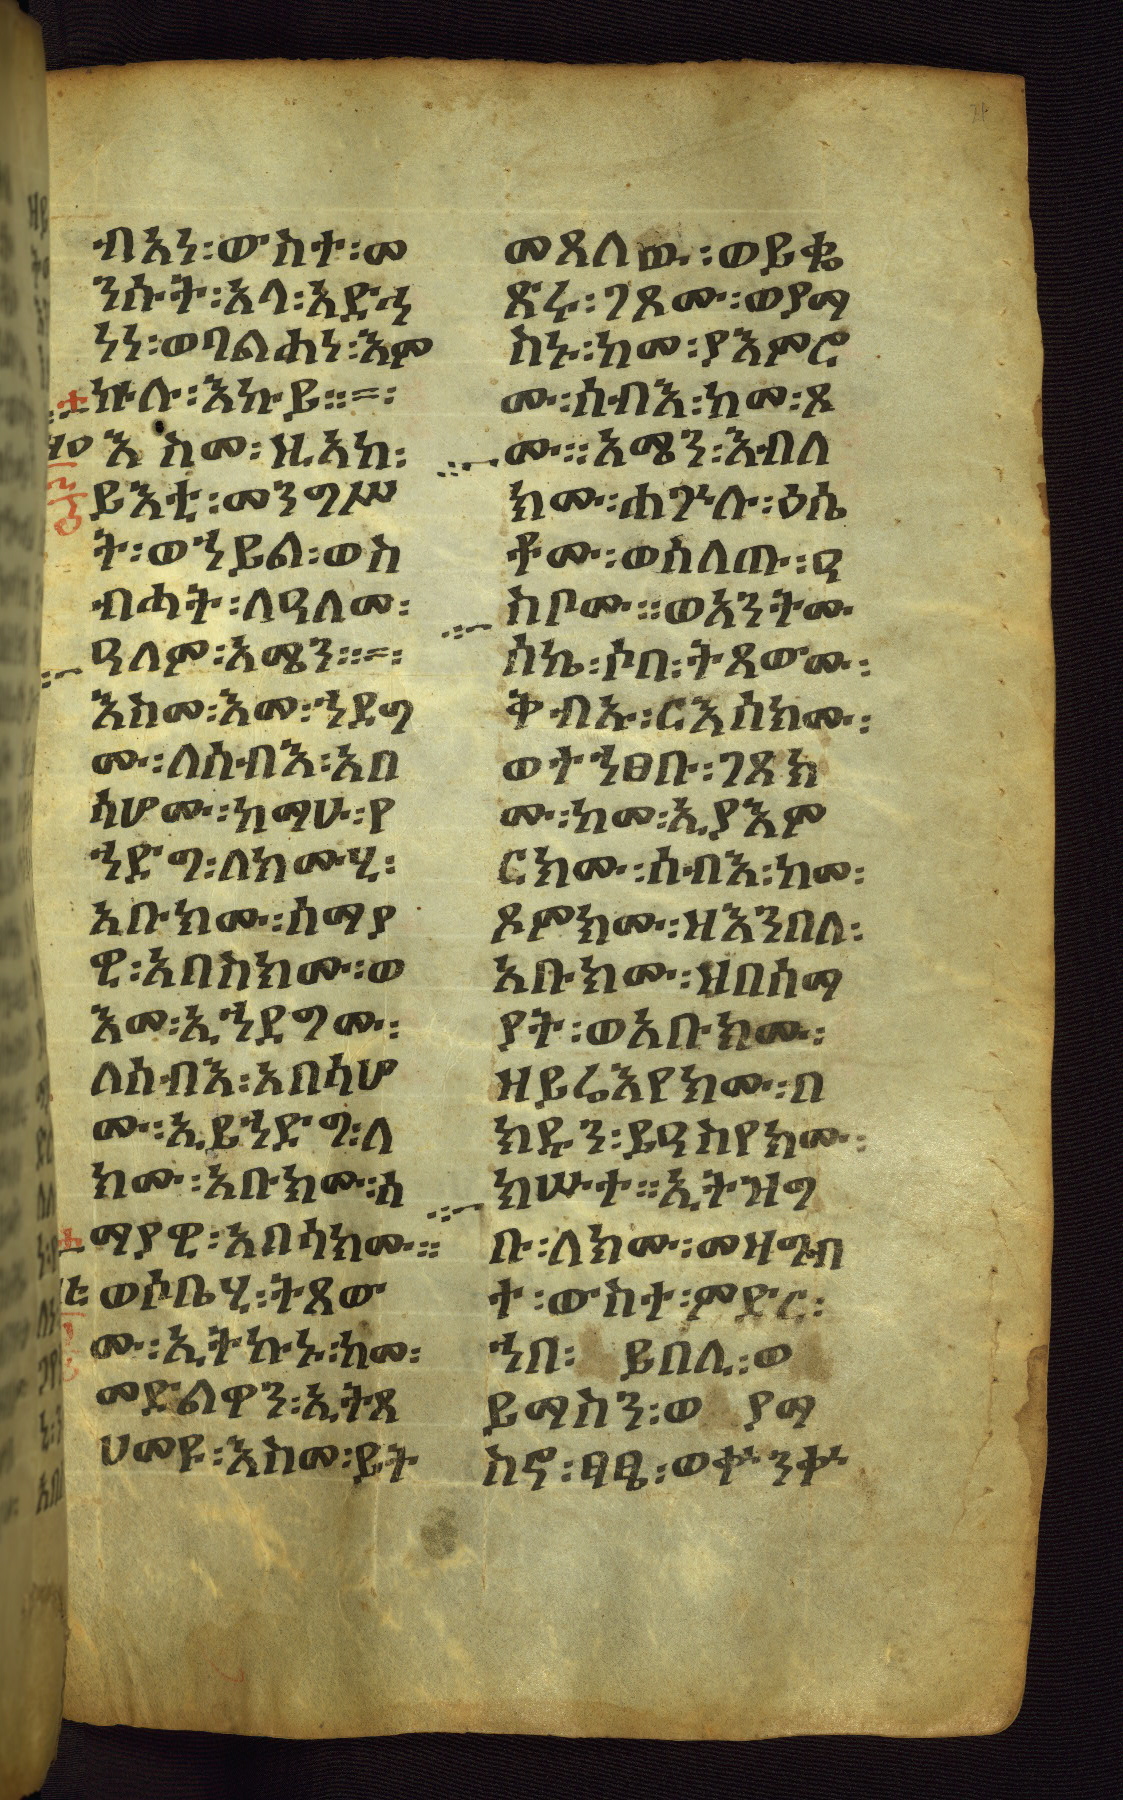 ብአነ፡ውስተ፡መ
ንሱት፡አላ፡አድኅ
ነነ፡ወባልሐነ፡እም
ኵሉ፡እኩይ፡፡=፡
እስመ፡ዚአከ፡
ይእቲ፡መንግሥ
ት፡ወኀይል፡ወስ
ብሓት፡ለዓለመ፡
ዓለም፡አሜን፡፡=፡
እስመ፡እመ፡ኀደግ
ሙ፡ለሰብእ፡አበ
ሳሆሙ፡ከማሁ፡የ
ኀድግ፡ለክሙሂ፡
አቡክሙ፡ሰማያ
ዊ፡አበስክሙ፡ወ
እመ፡ኢኀደግሙ፡
ለሰብእ፡አበሳሆ
ሙ፡ኢይኀድግ፡ለ
ክሙ፡አቡክሙ፡ሰ
ማያዊ፡አበሳክሙ፡፡
ወሶቤሂ፡ትጸው
ሙ፡ኢትኩኑ፡ከመ፡
መድልዋን፡ኢትጸ
ሀመዩ፡እስመ፡ይት
መጸለዉ፡ወይቄ
ጽሩ፡ገጾሙ፡ወያማ
ስኑ፡ከመ፡ያእምሮ
ሙ፡ሰብእ፡ከመ፡ጾ
ሙ፡፡አሜን፡እብለ
ክሙ፡ሐጕሉ፡ዕሴ
ቶሙ፡ወሰለጡ፡ዓ
ስቦሙ፡፡ወአንትሙ
ሰኬ፡ሶበ፡ትጸውሙ፡
ቅብኡ፡ርእሰክሙ፡
ወትኀፀቡ፡ገጸክ
ሙ፡ከመ፡ኢያእም
ርክሙ፡ሰብእ፡ከመ፡
ጾምክሙ፡ዘእንበለ፡
አቡክሙ፡ዘበሰማ
ያት፡ወአቡክሙ፡
ዘይሬእየክሙ፡በ
ክዱን፡ይዓስየክሙ፡
ክሡተ፡፡ኢትዝግ
ቡ፡ለክሙ፡መዛግብ
ተ፡ውስተ፡ምድር፡
ኀበ፡ ይበሊ፡ወ
ይማስን፡ወ ያማ
ስኖ፡ፃፄ፡ወቍንቍ